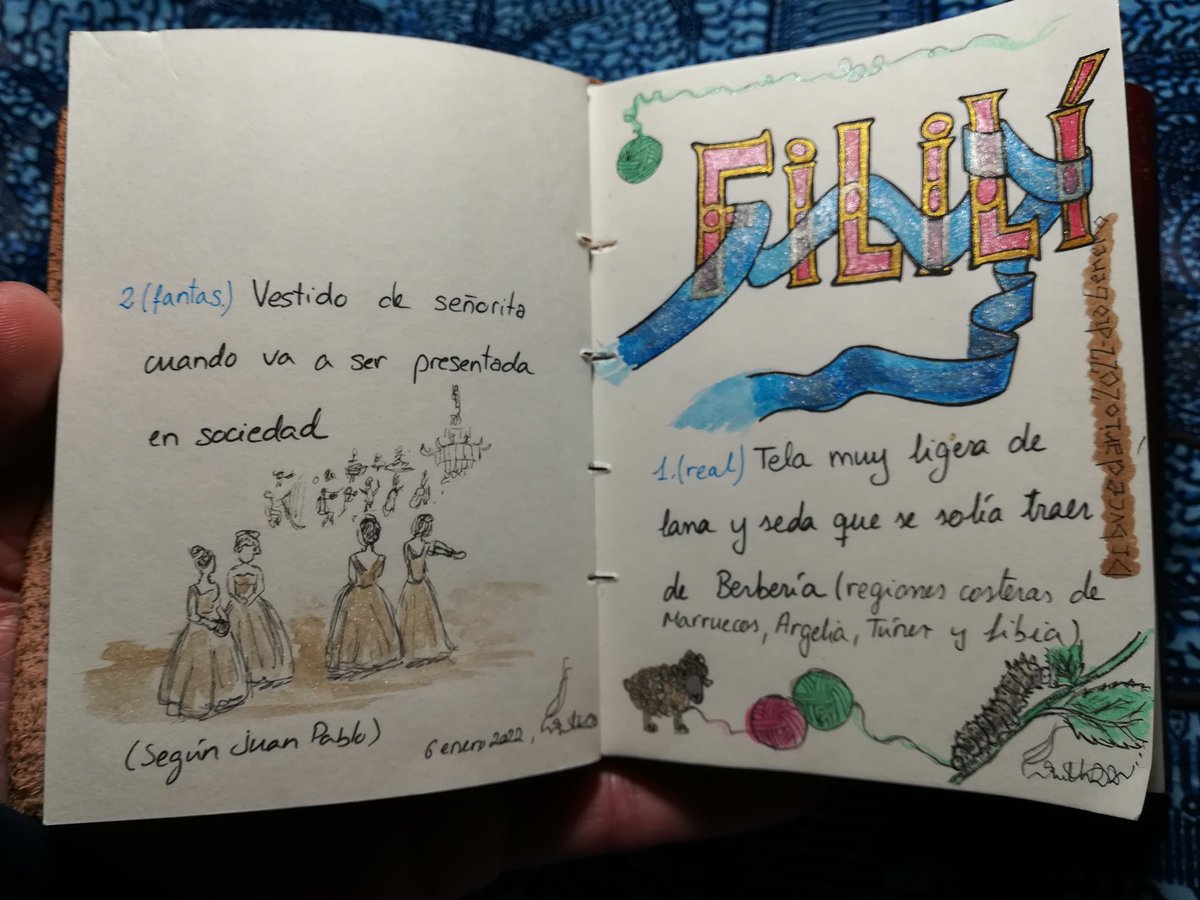 2 (fantas.) Vestido de señorita
cuando va a ser presentada
en sociedad
(Según Juan Pablo)
6 enero 2022,
FiLiLÍ
1. (real) Tela muy ligera de
lana y seda que se solía traer
de Berbería (regiones costeras de
Marruecos, Argelia, Túnez y Libia)